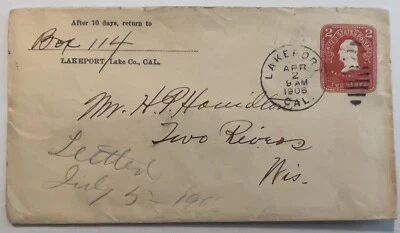 After 10 days, return to
Box 114
LAKEPORT, Lake Co., CAL.
2 UNITED STATES POSTAGE 2
LAKEPORT
APR
2
6 AM
1906
CAL.
Mr. H. P. Hamilton
Two Rivers
Wis.
Settled
July 5 190